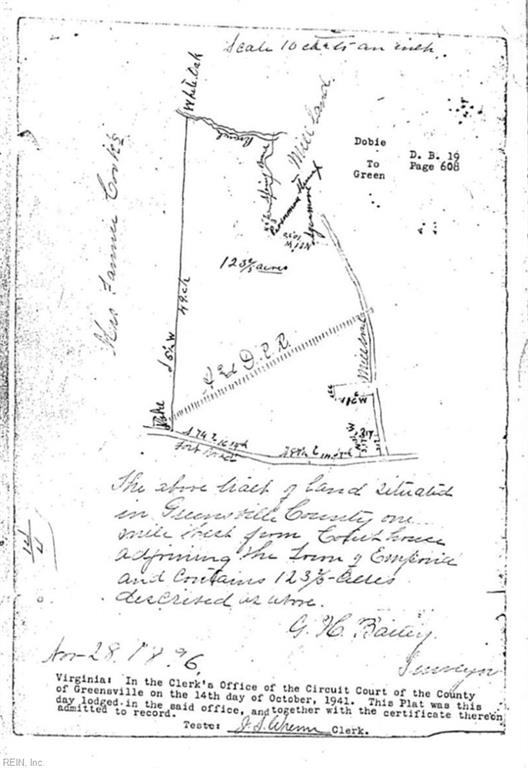 Scale 10 chs to an inch.
White Oak
Branch
Spring Branch
Mill land
Sycamore
Dobie
To
Green
D. B. 19
Page 608
Mrs Fannie Cooks
123 2/5 acres
49 ch
S 5½ W
A & D. R.R.
Mill road
Stake
S 74 E
Fort road
The above tract of land situated
in Greensville County one
mile West from Court house
adjoining the Town of Emporia
and contains 123 2/5 acres
described as above.
G. H. Bailey
Surveyor
Nov 28, 1896
Virginia: In the Clerk's Office of the Circuit Court of the County
of Greensville on the 14th day of October, 1941. This Plat was this
day lodged in the said office, and together with the certificate thereon
admitted to record.
Teste: Clerk.
REIN, Inc.